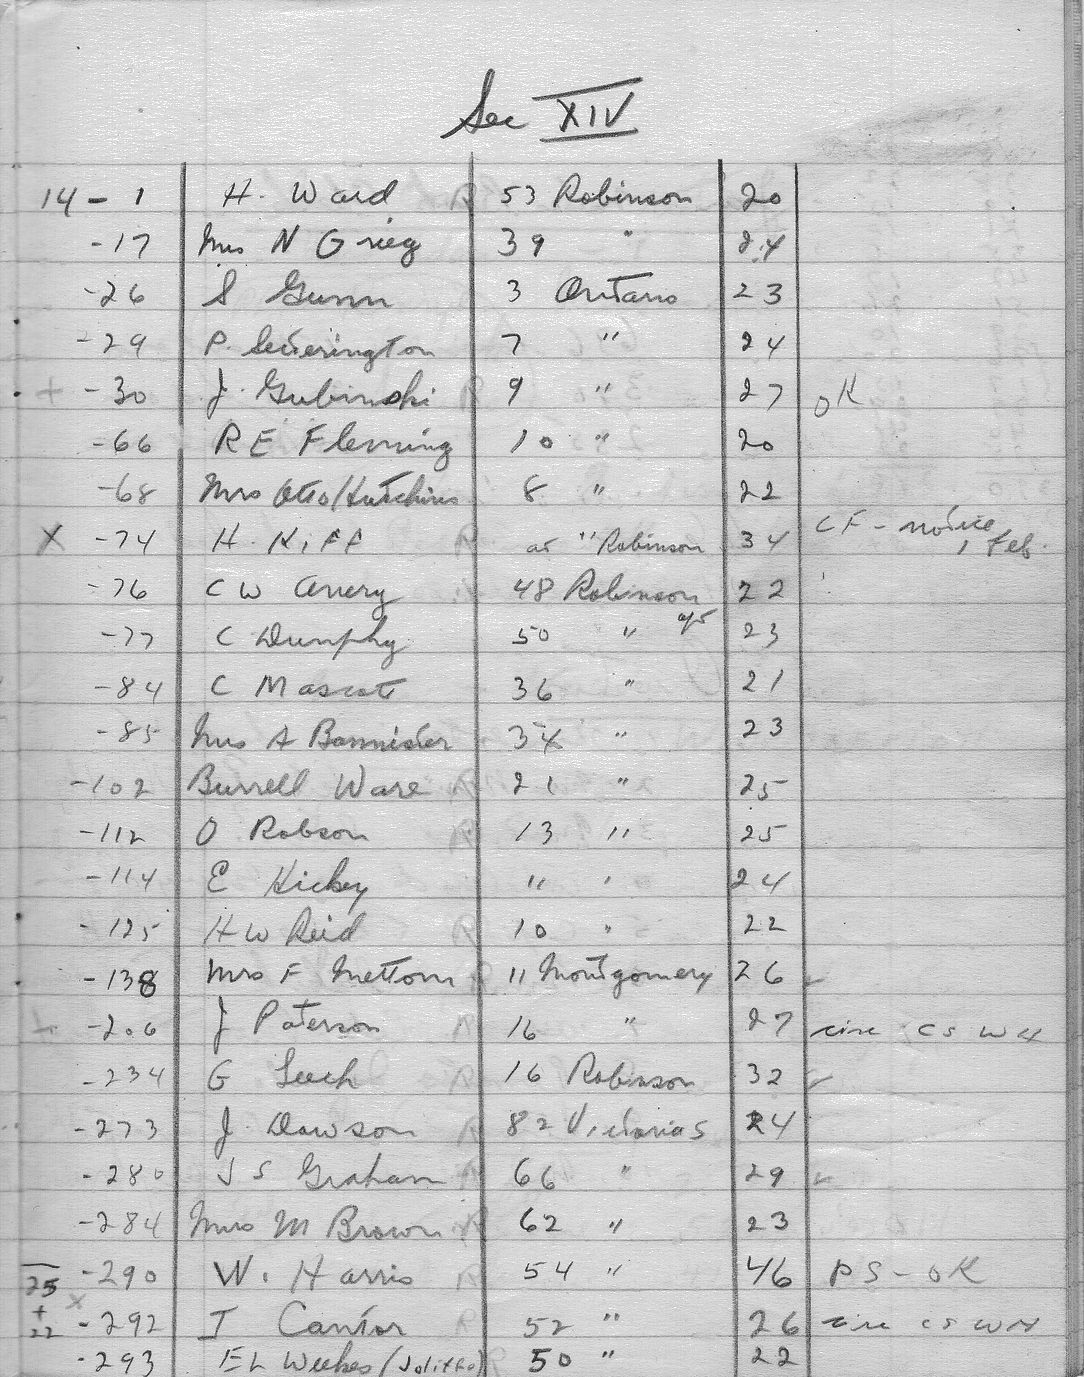 Sec XIV
14 - 1 H. Ward 53 Robinson 20
-17 Mrs N Grieg 39 " 24
-26 S Gunn 3 Ontario 23
-29 P. 7 " 24
+ -30 J. Gubinski 9 " 27 OK
-66 R E Fleming 10 " 20
-68 Mrs Otto/Hutchins 8 " 22
X -74 H. Kiff at " Robinson 34 CF - notice, Feb.
-76 C W Avery 48 Robinson 22
-77 C Dunphy 50 " 23
-84 C Mascot 36 " 21
-85 Mrs A Bannister 34 " 23
-102 Burrell Ware 21 " 25
-112 O Robson 13 " 25
-114 E Hickey " " 24
-125 H W Reid 10 " 22
-138 Mrs F Mettom 11 Montgomery 26 ✓
+ -206 J Paterson 16 " 27 CS WH
-234 G Leach 16 Robinson 32 ✓
-273 J. Dawson 82 Victoria S 24
-280 J S Graham 66 " 29 ✓
-284 Mrs M Brown 62 " 23
25 -290 W. Harris 54 " 46 PS-OK
+ 22 X -292 I Cantor 52 " 26 CS WH
-293 E L Weekes (Joliffe) 50 " 22